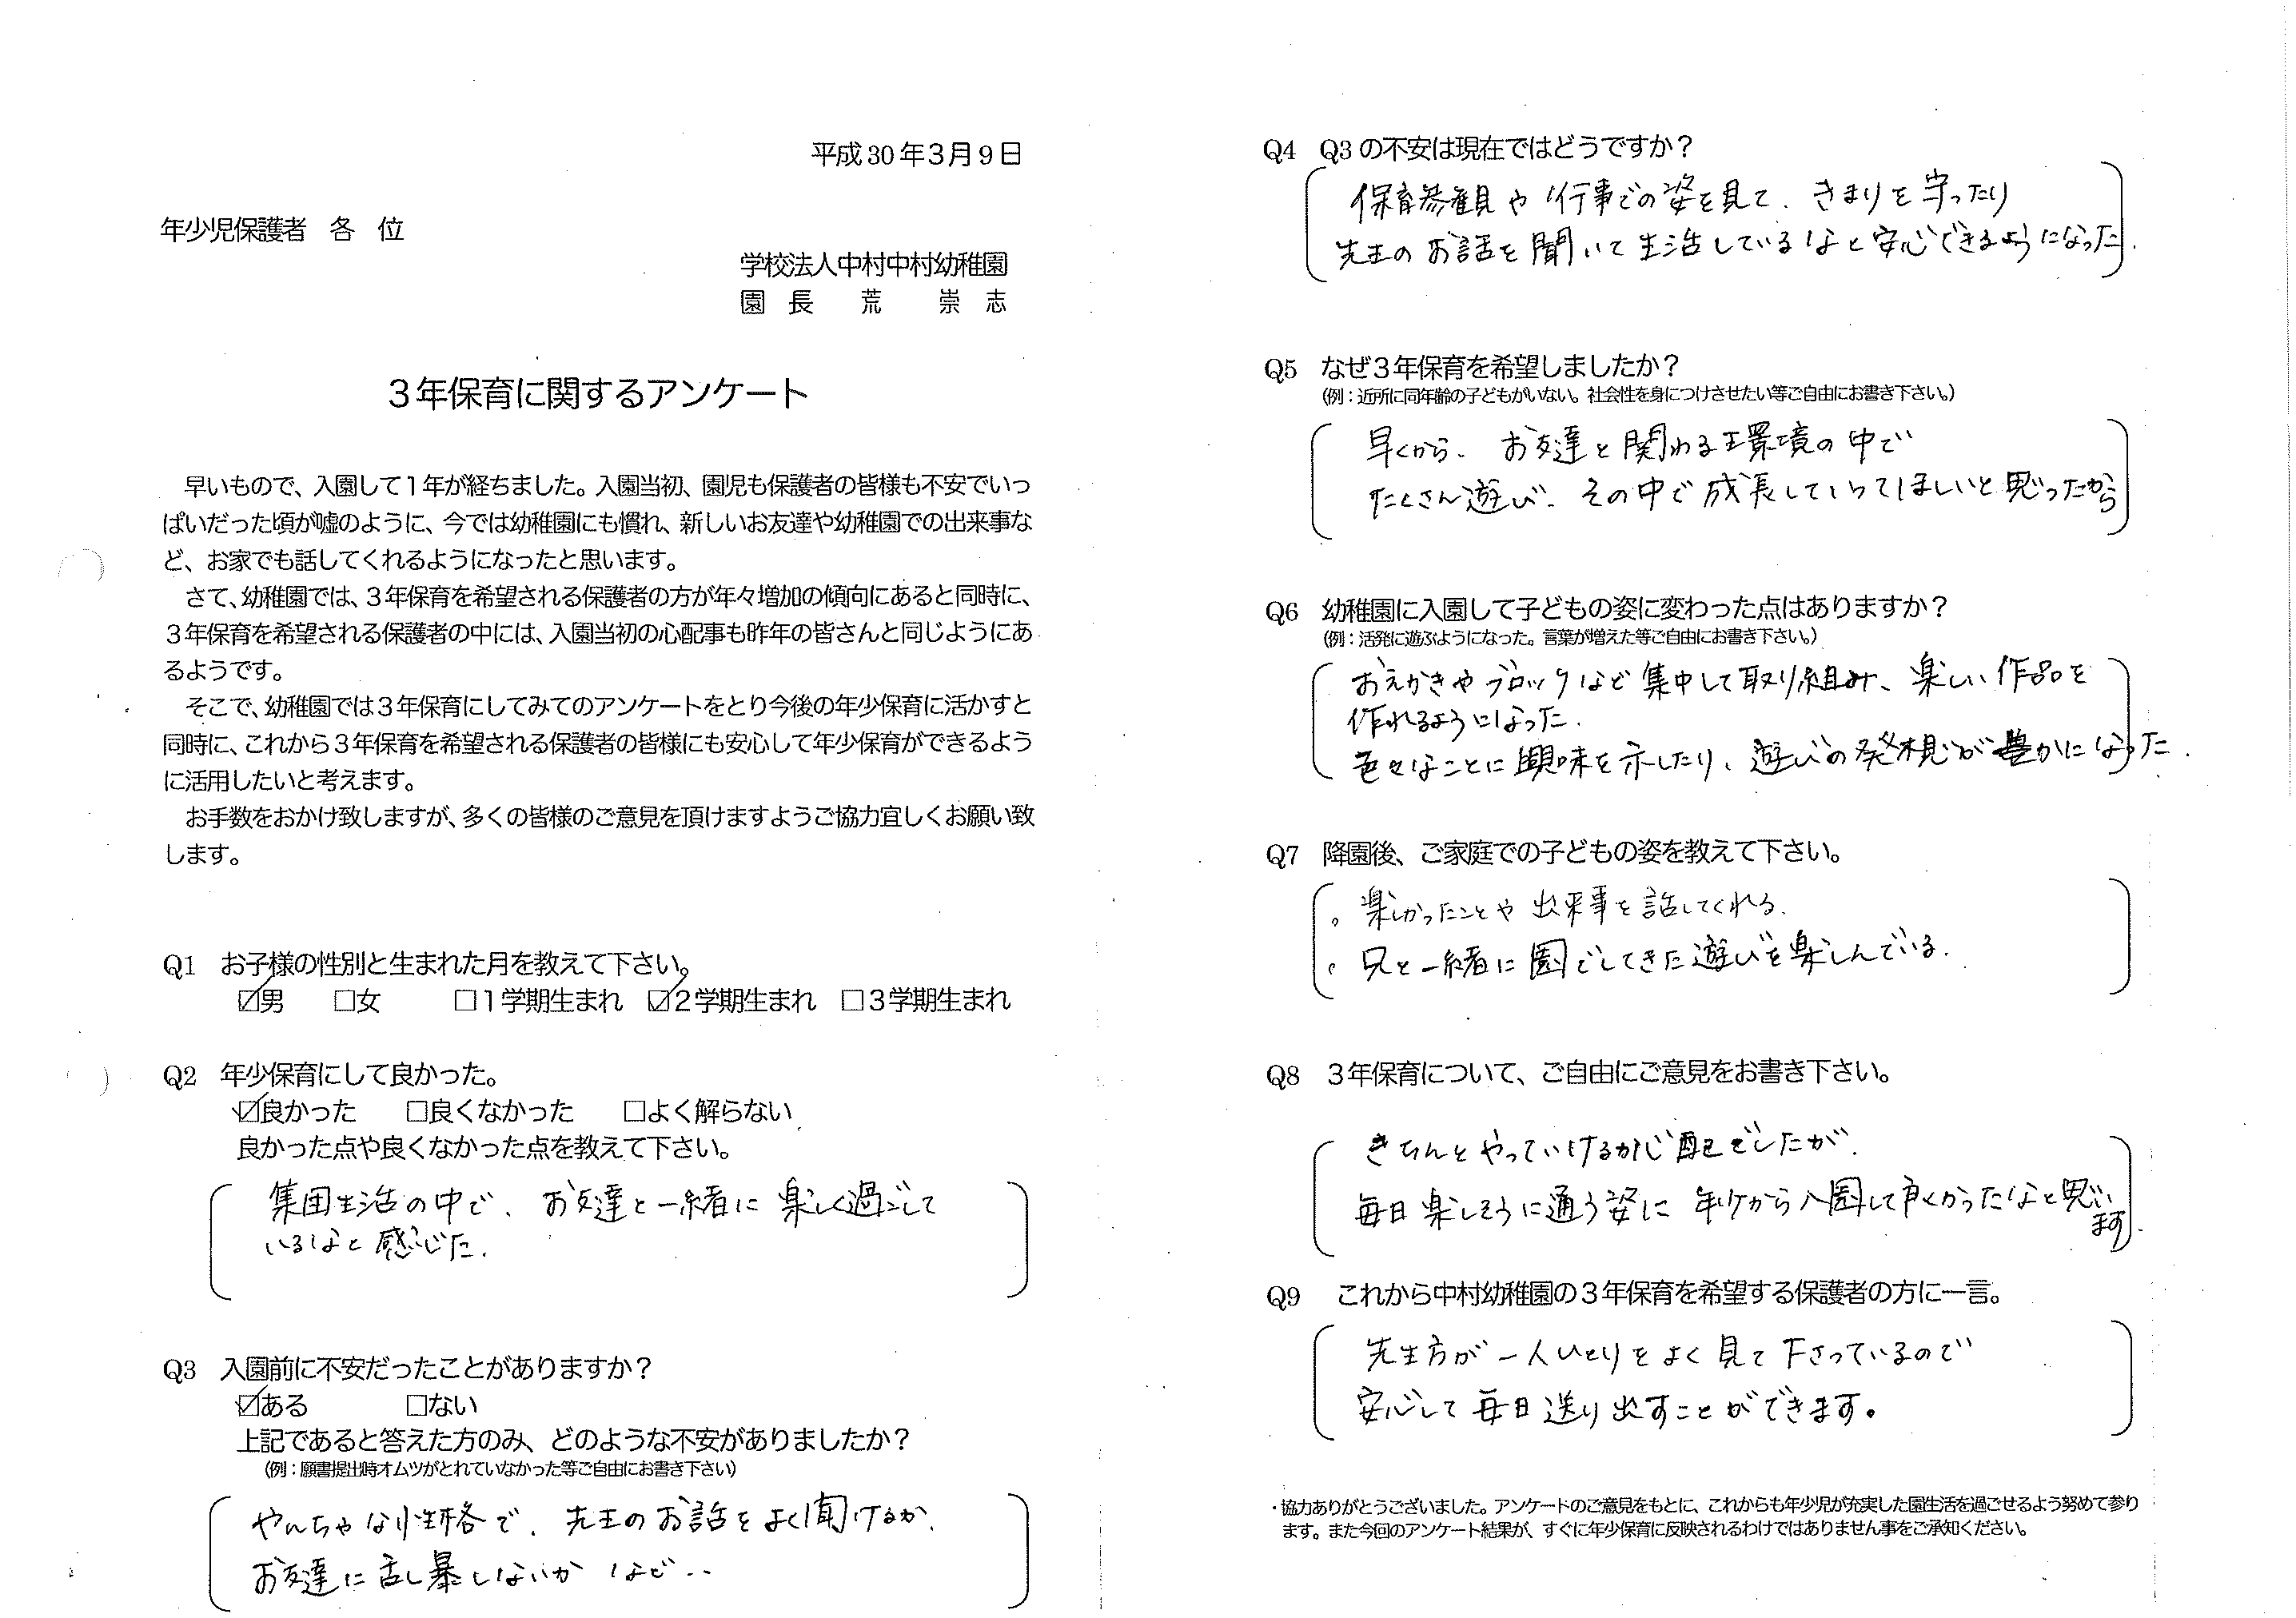 平成30年3月9日
年少児保護者 各 位
学校法人中村中村幼稚園
園 長 荒 崇 志
3年保育に関するアンケート
早いもので、入園して1年が経ちました。入園当初、園児も保護者の皆様も不安でいっ
ぱいだった頃が嘘のように、今では幼稚園にも慣れ、新しいお友達や幼稚園での出来事な
ど、お家でも話してくれるようになったと思います。
さて、幼稚園では、3年保育を希望される保護者の方が年々増加の傾向にあると同時に、
3年保育を希望される保護者の中には、入園当初の心配事も昨年の皆さんと同じようにあ
るようです。
そこで、幼稚園では3年保育にしてみてのアンケートをとり今後の年少保育に活かすと
同時に、これから3年保育を希望される保護者の皆様にも安心して年少保育ができるよう
に活用したいと考えます。
お手数をおかけ致しますが、多くの皆様のご意見を頂けますようご協力宜しくお願い致
します。
Q1 お子様の性別と生まれた月を教えて下さい。
☑男 □女 □1学期生まれ ☑2学期生まれ □3学期生まれ
Q2 年少保育にして良かった。
☑良かった □良くなかった □よく解らない
良かった点や良くなかった点を教えて下さい。
集団生活の中で、お友達と一緒に楽しく過ごして
いるなと感じた.
Q3 入園前に不安だったことがありますか?
☑ある □ない
上記であると答えた方のみ、どのような不安がありましたか?
(例:願書提出時オムツがとれていなかった等ご自由にお書き下さい)
やんちゃな性格で、先生のお話をよく聞けるか、
お友達に乱暴しないか など‥
Q4 Q3の不安は現在ではどうですか?
保育参観や行事での姿を見て、きまりを守ったり
先生のお話を聞いて生活しているなと安心できるようになった.
Q5 なぜ3年保育を希望しましたか?
(例:近所に同年齢の子どもがいない。社会性を身につけさせたい等ご自由にお書き下さい。)
早くから、お友達と関わる環境の中で
たくさん遊び、その中で成長していってほしいと思ったから
Q6 幼稚園に入園して子どもの姿に変わった点はありますか?
(例:活発に遊ぶようになった。言葉が増えた等ご自由にお書き下さい。)
おえかきやブロックなど集中して取り組み、楽しい作品を
作れるようになった.
色々なことに興味を示したり、遊びの発想が豊かになった.
Q7 降園後、ご家庭での子どもの姿を教えて下さい。
。楽しかったことや出来事を話してくれる.
。兄と一緒に園でしてきた遊びを楽しんでいる.
Q8 3年保育について、ご自由にご意見をお書き下さい。
きちんとやっていけるか心配でしたが、
毎日楽しそうに通う姿に 年少から入園して良かったなと思い
ます.
Q9 これから中村幼稚園の3年保育を希望する保護者の方に一言。
先生方が一人ひとりをよく見て下さっているので
安心して毎日送り出すことができます。
・協力ありがとうございました。アンケートのご意見をもとに、これからも年少児が充実した園生活を過ごせるよう努めて参り
ます。また今回のアンケート結果が、すぐに年少保育に反映されるわけではありません事をご承知ください。